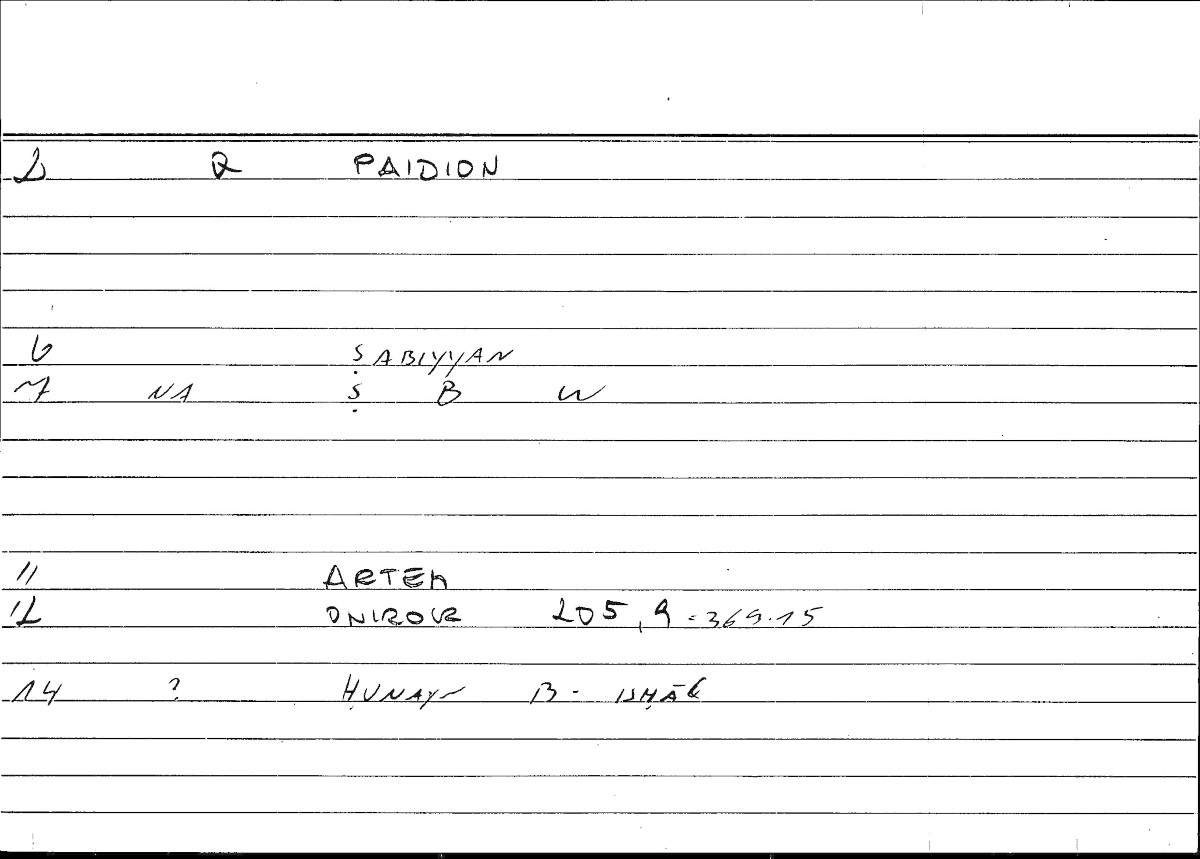 2 R PAIDION
6 ṢABIYYAN
7 NA Ṣ B W
11 ARTEM
12 ONIROCR 205,9 = 369.15
14 ? ḤUNAYN B. ISḤĀḲ